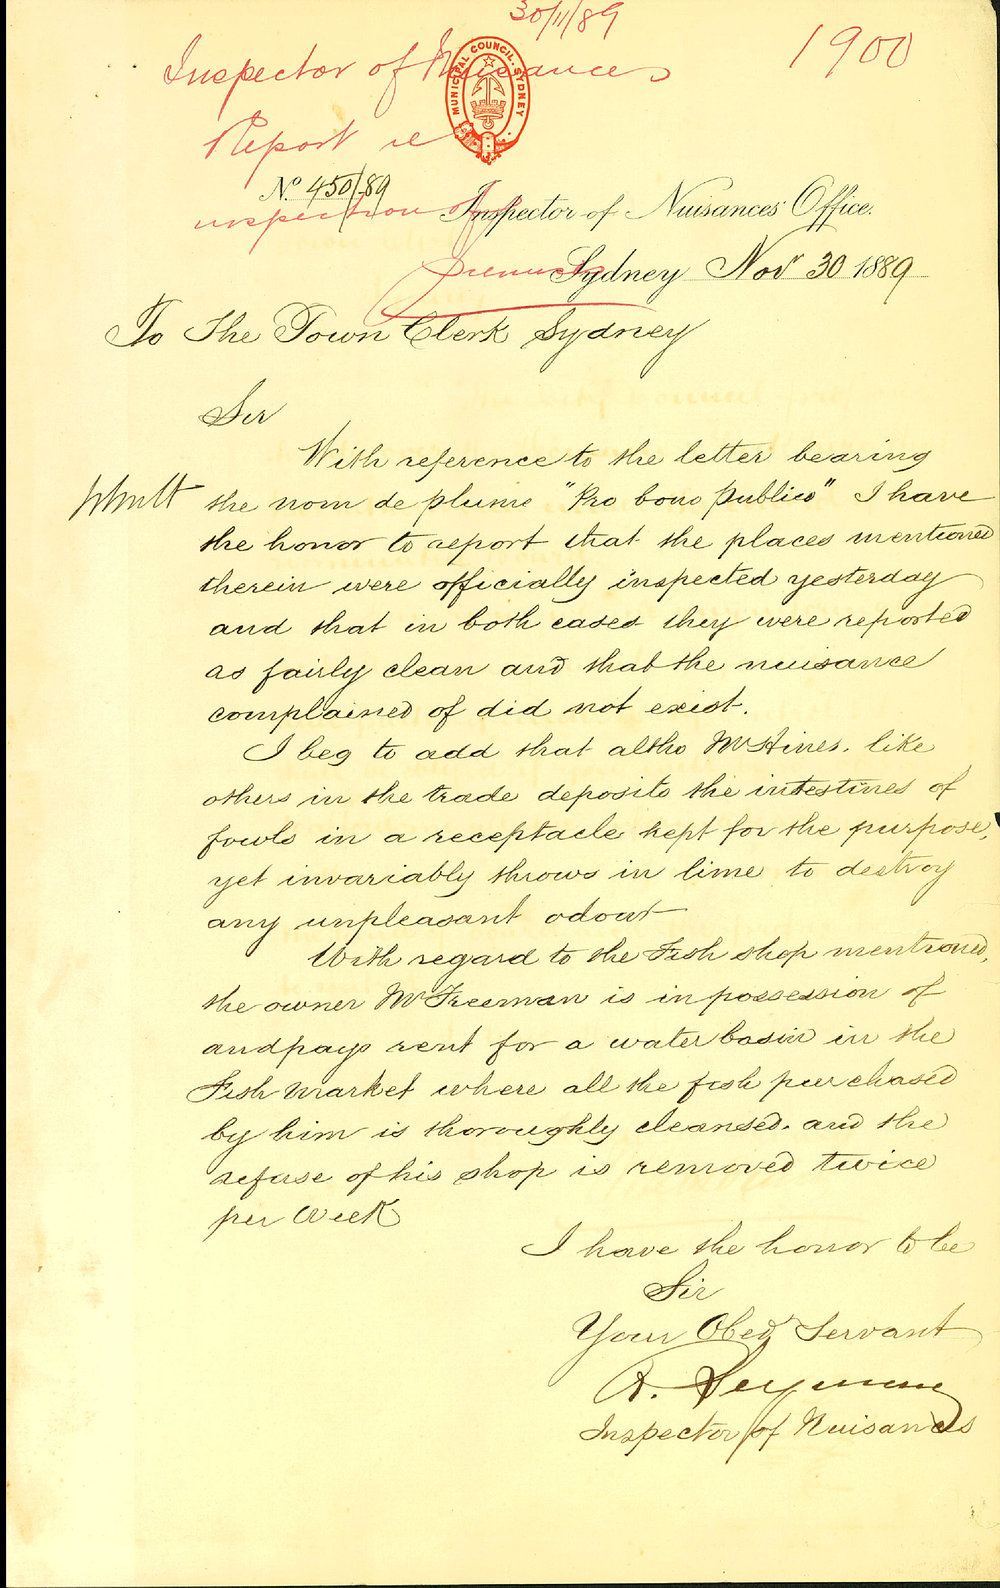 30/11/89
1900
Inspector of Nuisances
MUNICIPAL COUNCIL. SYDNEY
Report re
No. 450/89
inspection of
Inspector of Nuisances Office.
premises
Sydney Nov 30 1889
To The Town Clerk Sydney
Sir
With reference to the letter bearing
the nom de plume "Pro bono Publico" I have
the honor to report that the places mentioned
therein were officially inspected yesterday
and that in both cases they were reported
as fairly clean and that the nuisance
complained of did not exist.
I beg to add that altho Mr Hines. like
others in the trade deposits the intestines of
fowls in a receptacle kept for the purpose,
yet invariably throws in lime to destroy
any unpleasant odour
With regard to the Fish shop mentioned,
the owner Mr Freeman is in possession of
and pays rent for a water basin in the
Fish Market where all the fish purchased
by him is thoroughly cleansed. and the
refuse of his shop is removed twice
per Week
I have the honor to be
Sir
Your Obedt Servant
R. Seymour
Inspector of Nuisances